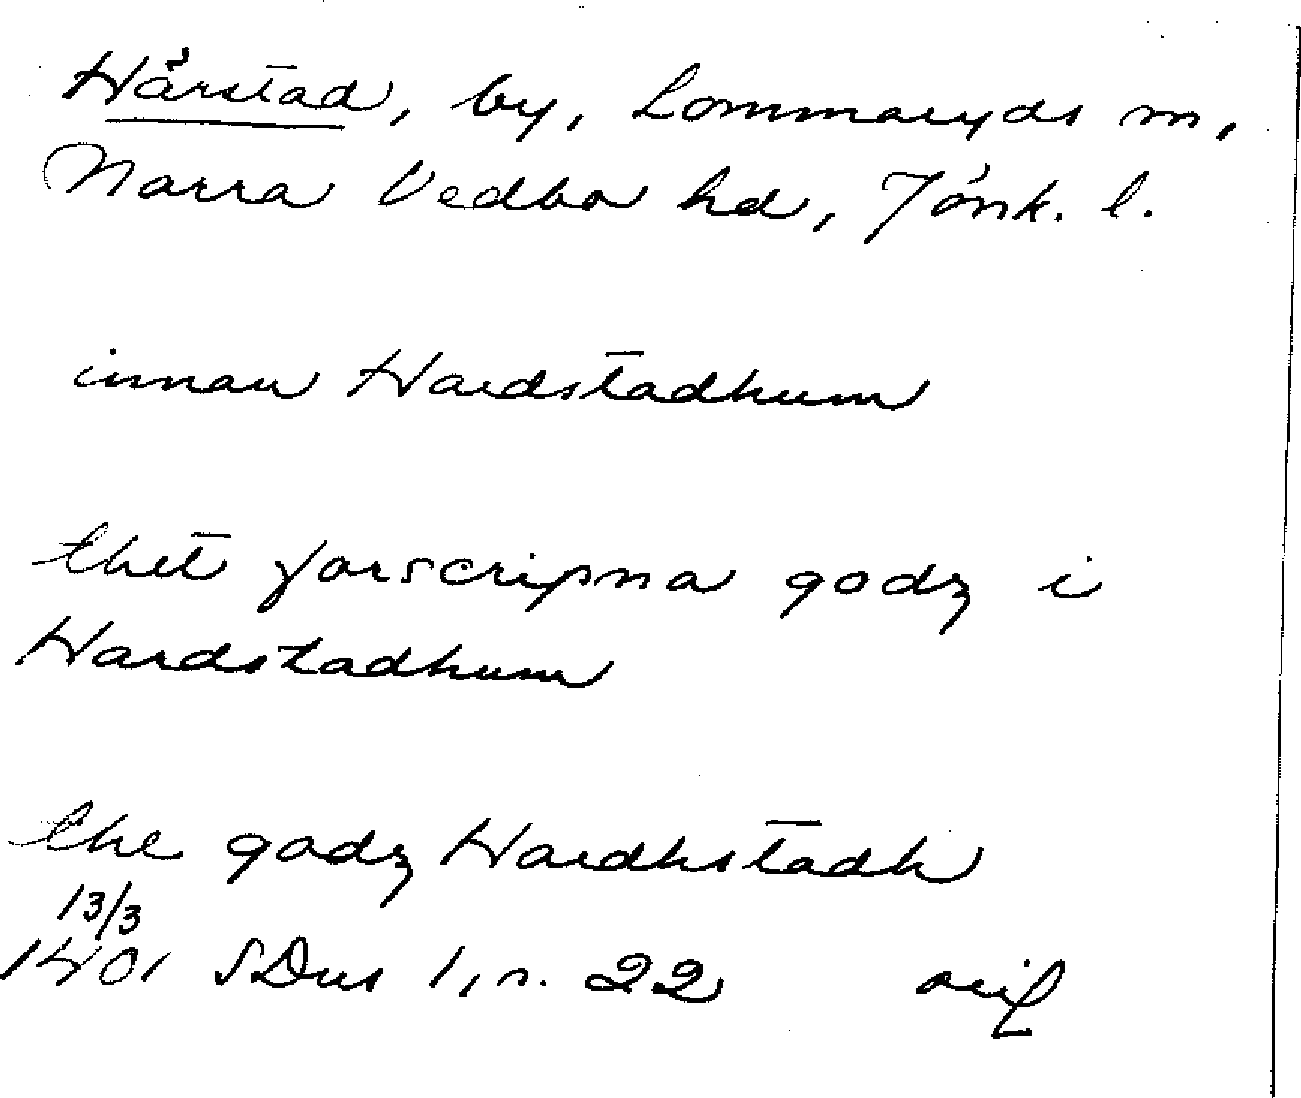 Hårstad, by, Lommaryds sn,
Norra Vedbo hd, Jönk. l.
innan Hardstadhum
thet forscripna godz i
Hardstadhum
the godz Hardhstadh
13/3
1401 SDns 1, s. 22 orig